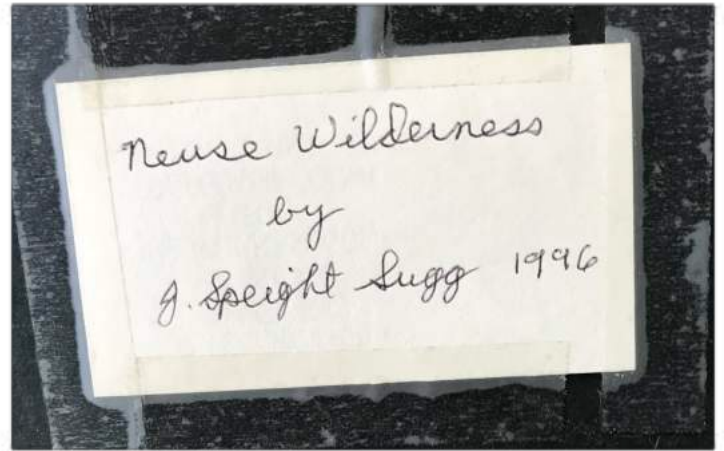 Neuse Wilderness
by
J. Speight Sugg 1996